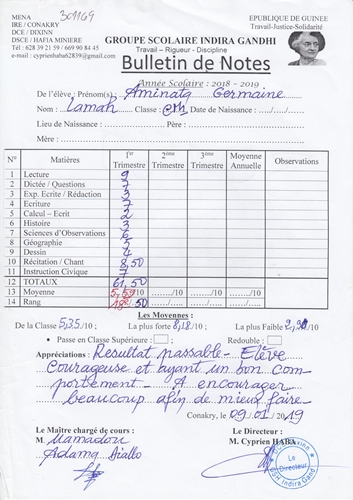 MENA
IRE / CONAKRY
DCE / DIXINN
DSCE / HAFIA MINIERE
Tél : 628 39 21 59 / 669 90 84 45
e-mail : cyprienhaba62839@gmail.com
301169
EPUBLIQUE DE GUINEE
Travail-Justice-Solidarité
GROUPE SCOLAIRE INDIRA GANDHI
Travail – Rigueur - Discipline
Bulletin de Notes
Année Scolaire : 2018 - 2019
De l'élève : Prénom(s) Aminata Germaine
Nom : Lamah Classe : Date de Naissance :
Lieu de Naissance : Père :
Mère :
N° Matières 1er Trimestre 2ème Trimestre 3ème Trimestre Moyenne Annuelle Observations
1 Lecture 9
2 Dictée / Questions 7
3 Exp. Ecrite / Rédaction 3
4 Ecriture 7
5 Calcul – Ecrit 2
6 Histoire 3
7 Sciences d'Observations 6
8 Géographie 5
9 Dessin 4
10 Récitation / Chant 8,50
11 Instruction Civique 7
12 TOTAUX 61,50
13 Moyenne 5,59/10 /10 /10 /10
14 Rang 50
Les Moyennes :
De la Classe 5,35/10 ; La plus forte 8,18/10 ; La plus Faible /10
• Passe en Classe Supérieure : Redouble :
Appréciations : Resultat passable - Elève
Courageuse et ayant un bon com-
portement - A encourager
beaucoup afin de mieux faire -
Conakry, le 09/01/2019
Le Maître chargé de cours :
M. Mamadou
Adama Diallo
Le Directeur :
M. Cyprien HABA
Le Directeur
GSH Indira Gand